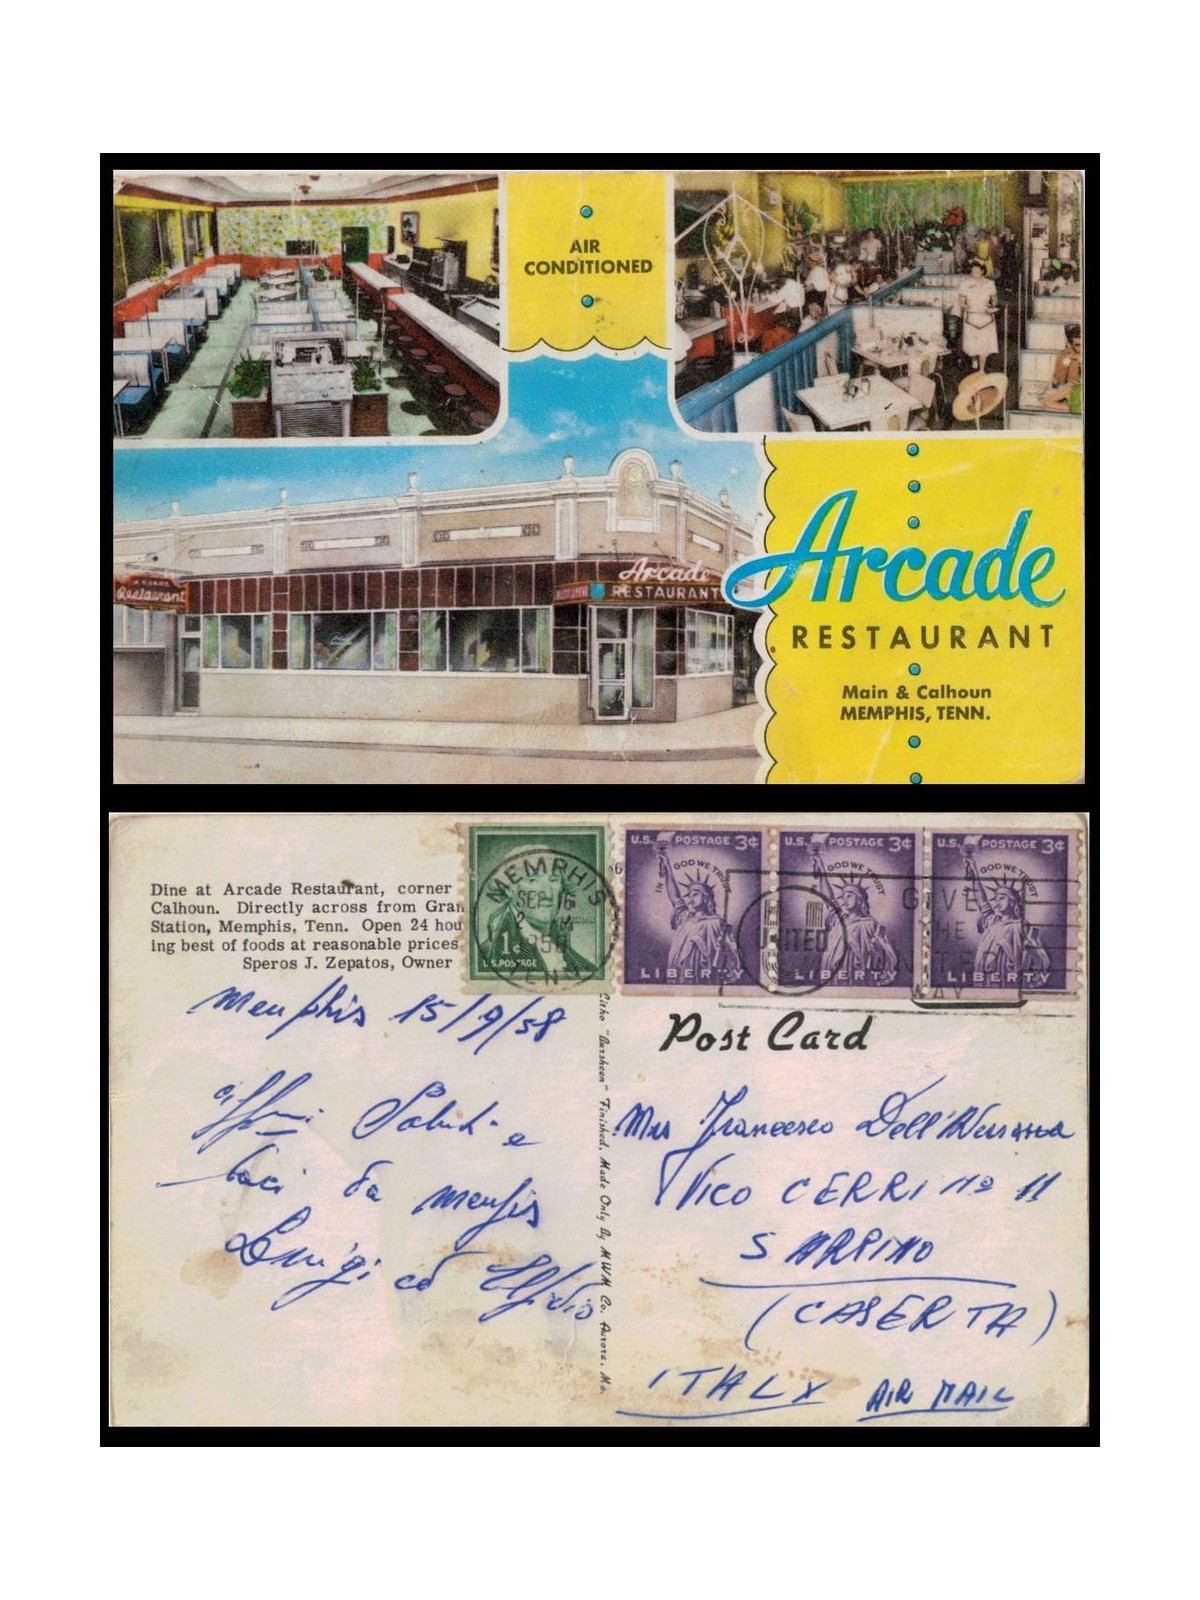 AIR
CONDITIONED
Arcade
RESTAURANT
Arcade
RESTAURANT
Restaurant
Main & Calhoun
MEMPHIS, TENN.
Dine at Arcade Restaurant, corner
Calhoun. Directly across from Gran
Station, Memphis, Tenn. Open 24 hou
ing best of foods at reasonable prices
Speros J. Zepatos, Owner
1¢
U.S. POSTAGE
MEMPHIS
SEP 16
1958
TENN
U.S. POSTAGE 3¢
IN GOD WE TRUST
LIBERTY
U.S. POSTAGE 3¢
GOD WE TRUST
LIBERTY
U.S. POSTAGE 3¢
GOD WE TRUST
LIBERTY
GIVE
THE
UNITED
WAY
Post Card
Litho "Darsheen" Finished, Made Only By MWM Co. Aurora, Mo.
Memphis 15/9/58
Saluti e
baci da Menfis
Luigi ed
Francesco Dell'
Vico CERRI no 11
(CASERTA)
ITALY
AIR MAIL